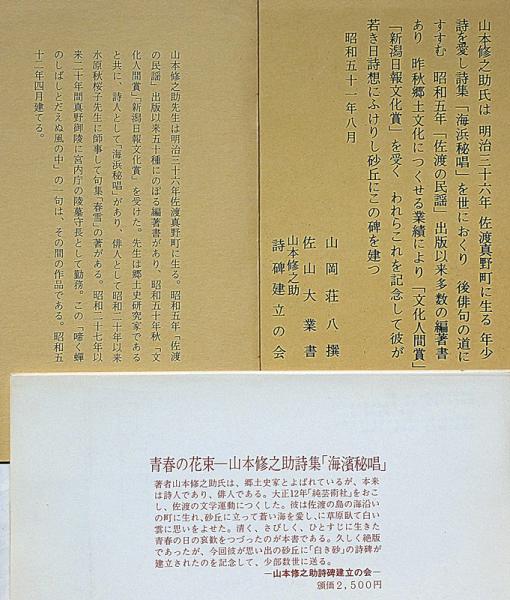 山本修之助氏は 明治三十六年 佐渡真野町に生る 年少
詩を愛し詩集「海浜秘唱」を世におくり 後俳句の道に
すすむ 昭和五年「佐渡の民謡」出版以来多数の編著書
あり 昨秋郷土文化につくせる業績により「文化人間賞」
「新潟日報文化賞」を受く われらこれを記念して彼が
若き日詩想にふけりし砂丘にこの碑を建つ
昭和五十一年八月
山岡荘八 撰
佐山大業 書
山本修之助
詩碑建立の会
山本修之助先生は明治三十六年佐渡真野町に生る。昭和五年「佐渡
の民謡」出版以来五十種にのぼる編著書があり、昭和五十年秋「文
化人間賞」「新潟日報文化賞」を受けた。先生は郷土史研究家である
と共に、詩人として「海浜秘唱」があり、俳人として昭和二十年以来
水原秋桜子先生に師事して句集「春雪」の著がある。昭和二十七年以
来二十年間真野御陵に宮内庁の陵墓守長として勤務。この「啼く蟬
のしばしとだえぬ風の中」の一句は、その間の作品である。昭和五
十二年四月建てる。
青春の花束—山本修之助詩集「海濱秘唱」
著者山本修之助氏は、郷土史家とよばれているが、本来
は詩人であり、俳人である。大正12年「純芸術社」をおこ
し、佐渡の文学運動につくした。彼は佐渡の島の海沿い
の町に生れ、砂丘に立って蒼い海を愛し、に草原臥て白い
雲に思いをよせた。清く、さびしく、ひとすじに生きた
青春の日の哀歓をつづったのが本書である。久しく絶版
であったが、今回彼が思い出の砂丘に「白き砂」の詩碑が
建立されたのを記念して、少部数世に送る。
—山本修之助詩碑建立の会—
頒価2,500円